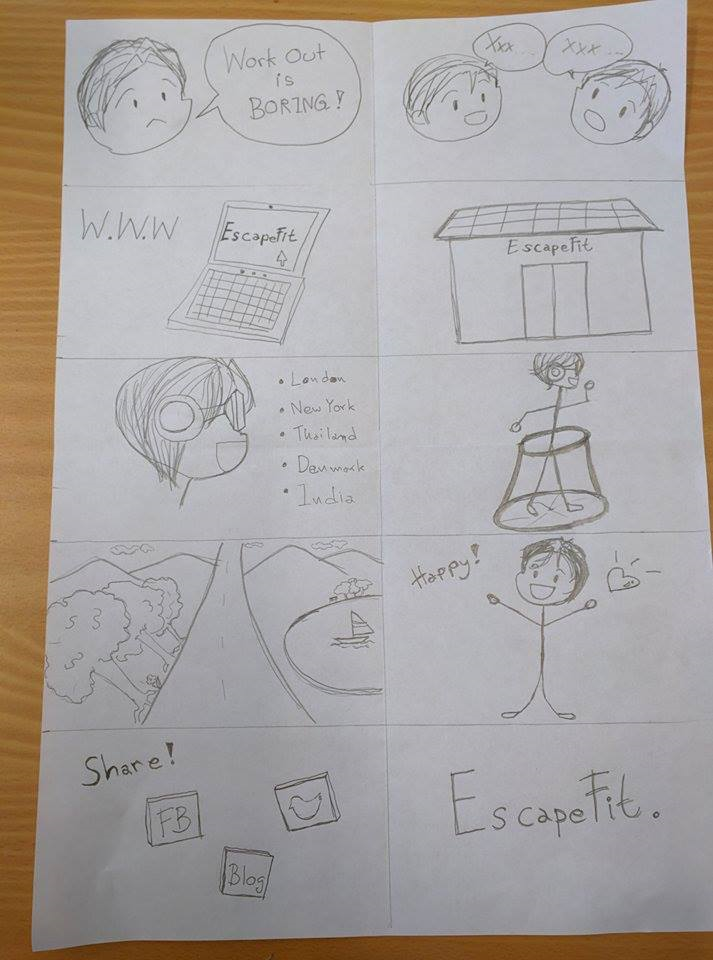 Work Out
is
BORING!
Xxx...
XXX...
W.W.W
EscapeFit
EscapeFit
• London
• New York
• Thailand
• Denmark
• India
Happy!
Share!
FB
Blog
EscapeFit.